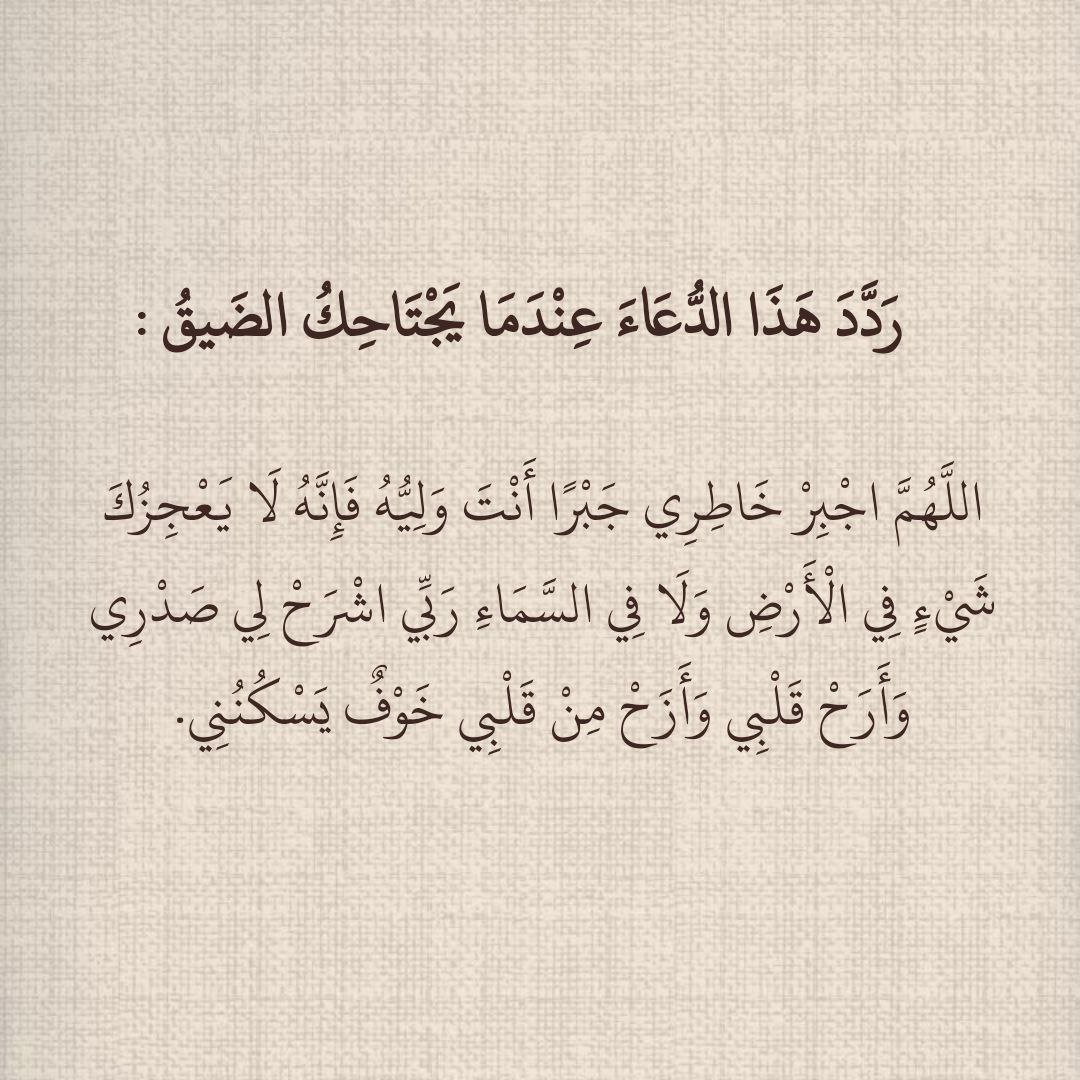 رَدَّدَ هَذَا الدُّعَاءَ عِنْدَمَا يَجْتَاحِكُ الضَيقُ :
اللَّهُمَّ اجْبِرْ خَاطِرِي جَبْرًا أَنْتَ وَلِيُّهُ فَإِنَّهُ لَا يَعْجِزُكَ
شَيْءٍ فِي الْأَرْضِ وَلَا فِي السَّمَاءِ رَبِّي اشْرَحْ لِي صَدْرِي
وَأَرَحْ قَلْبِي وَأَزَحْ مِنْ قَلْبِي خَوْفٌ يَسْكُنُنِي.